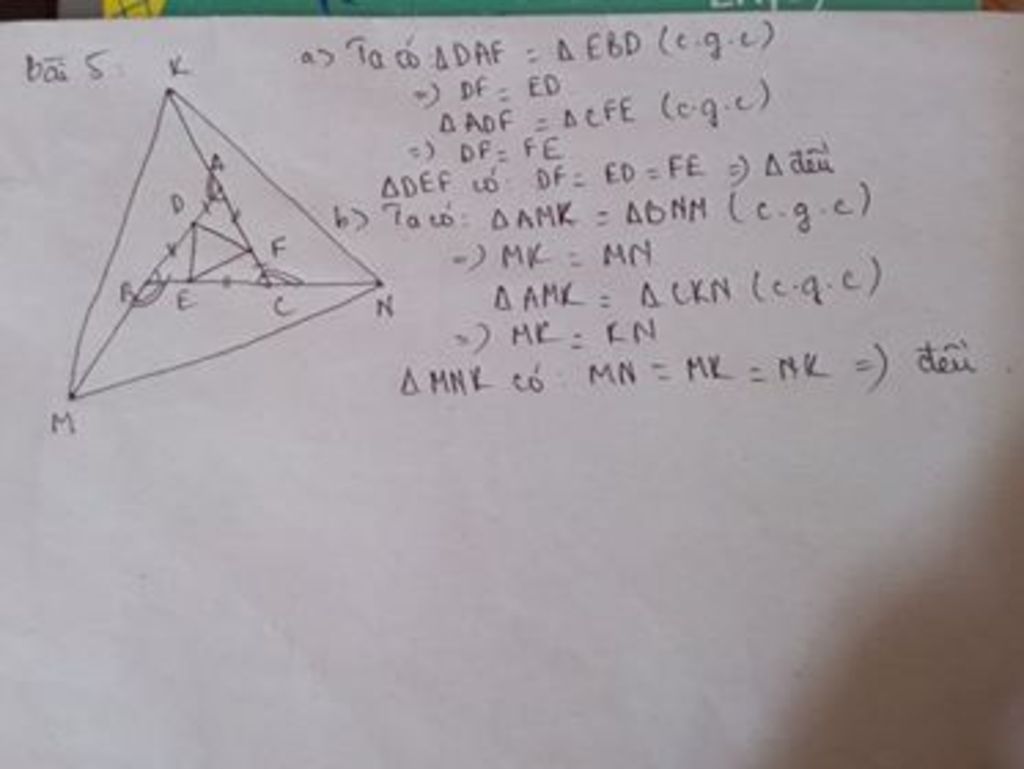 bài 5:
a) Ta có ΔDAF = ΔEBD (c.g.c)
=) DF = ED
ΔADF = ΔCFE (c.g.c)
=) DF = FE
ΔDEF có: DF = ED = FE =) Δ đều
b) Ta có: ΔAMK = ΔBNM (c.g.c)
=) MK = MN
ΔAMK = ΔCKN (c.g.c)
=) MK = KN
ΔMNK có: MN = MK = NK =) đều.
K
A
D
F
B
E
C
N
M